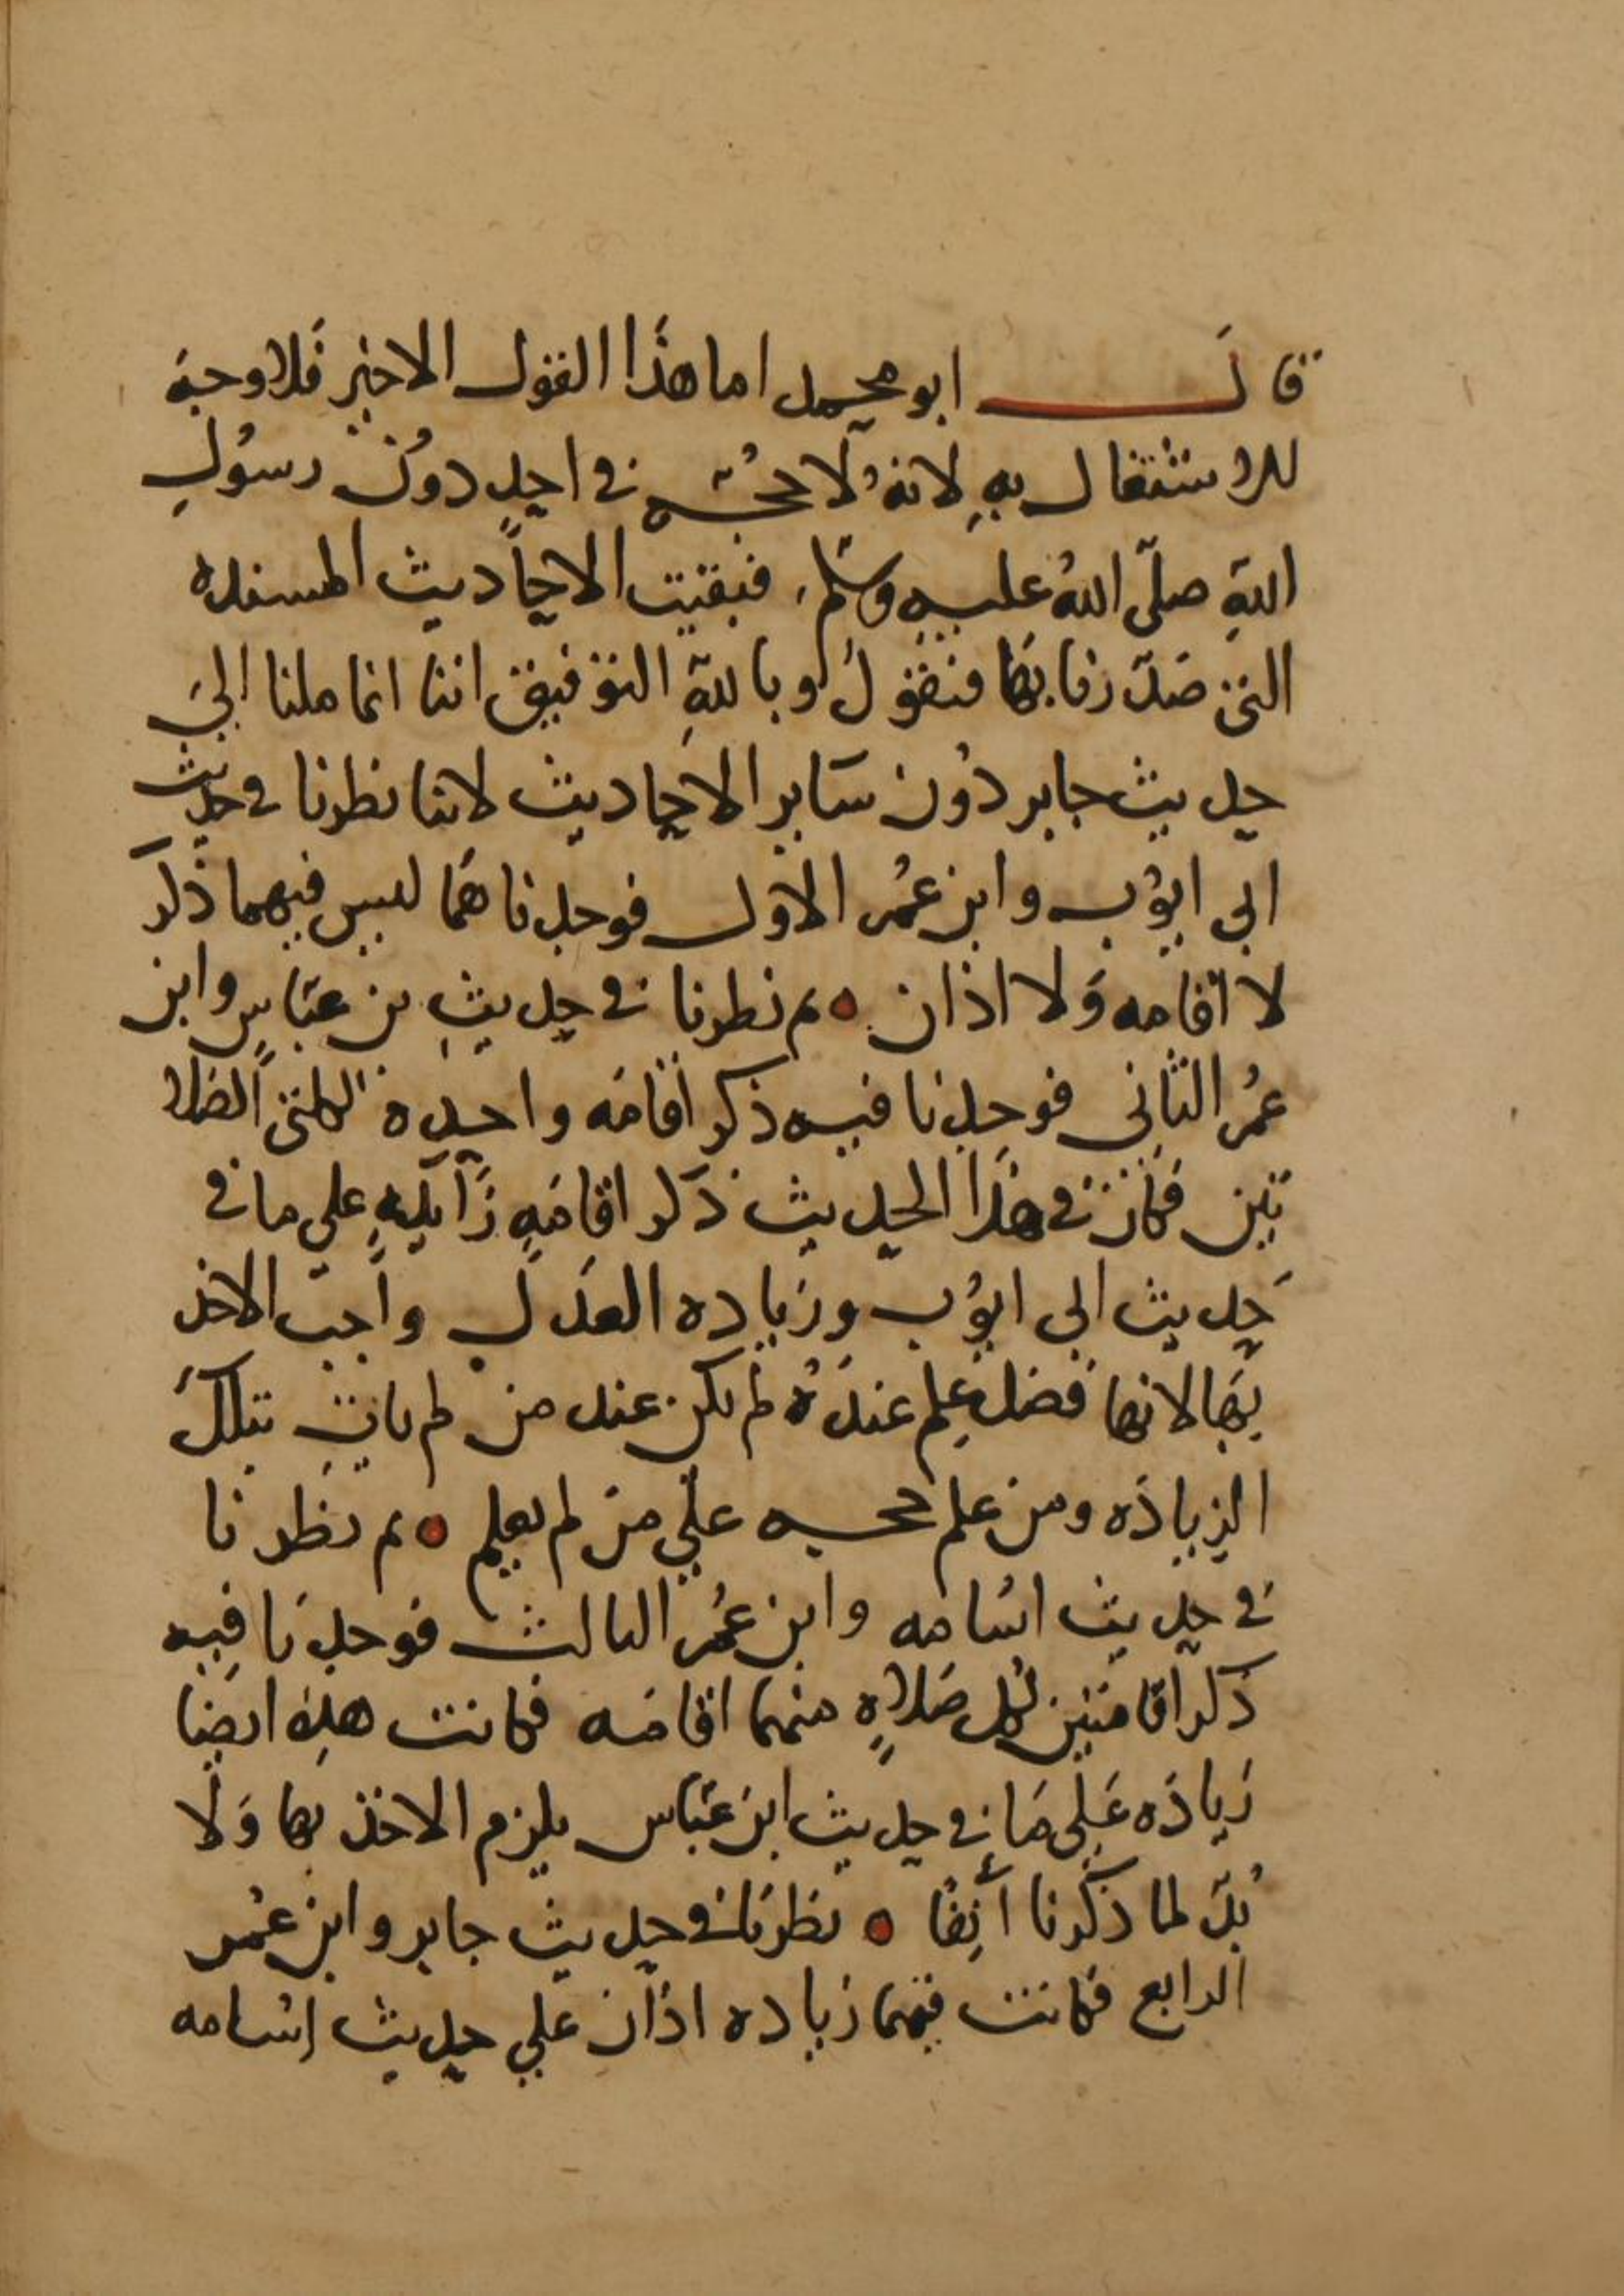 قال ابو محمد اما هذا القول الاخير فلا وجه
للاشتغال به لانه لا حجه في احد دون رسول
الله صلى الله عليه وسلم فبقيت الاحاديث المسنده
التي صدرنا بها فنقول وبالله التوفيق اننا انما ملنا الى
حديث جابر دون ساير الاحاديث لاننا نظرنا في حديث
ابي ايوب وابن عمر الاول فوجدناهما ليس فيهما ذكر
لا اقامه ولا اذان ثم نظرنا في حديث بن عباس وابن
عمر الثاني فوجدنا فيه ذكر اقامه واحده لكلتي الصلا
تين فكان في هذا الحديث ذكر اقامه زايده على ما في
حديث ابي ايوب وزياده العدل واجب الاخذ
بها لانها فضل علم عنده لم يكن عند من لم يات بتلك
الزياده ومن علم حجه على من لم يعلم ثم نظرنا
في حديث اسامه وابن عمر الثالث فوجدنا فيه
ذكر اقامتين لكل صلاه منهما اقامه فكانت هذه ايضا
زياده على ما في حديث ابن عباس يلزم الاخذ بها ولا
بد لما ذكرنا آنفا نظرنا في حديث جابر وابن عمر
الرابع فكانت فيهما زياده اذان على حديث اسامه